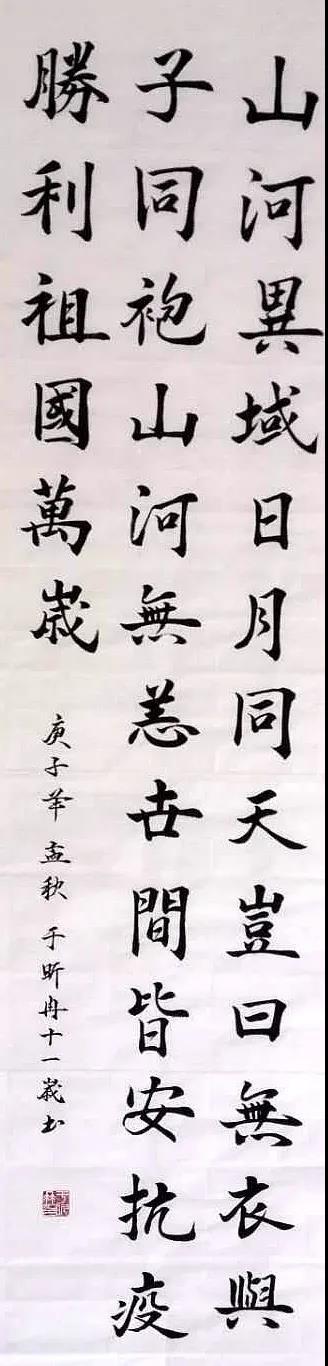 山河異域日月同天豈曰無衣與
子同袍山河無恙世間皆安抗疫
勝利祖國萬歲
庚子年孟秋于昕冉十一歲书